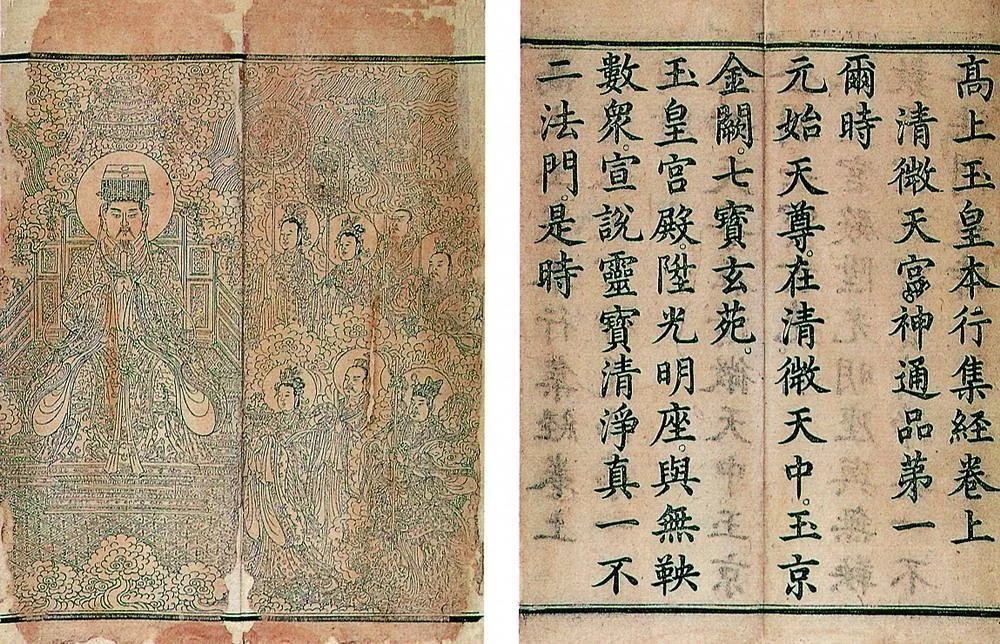 髙上玉皇本行集経卷上
清微天宮。神通品第一
爾時
元始天尊。在清微天中。玉京
金闕。七寶玄苑。
玉皇宮殿。陞光明座。與無鞅
數衆。宣說靈寶清淨真一不
二法門。是時